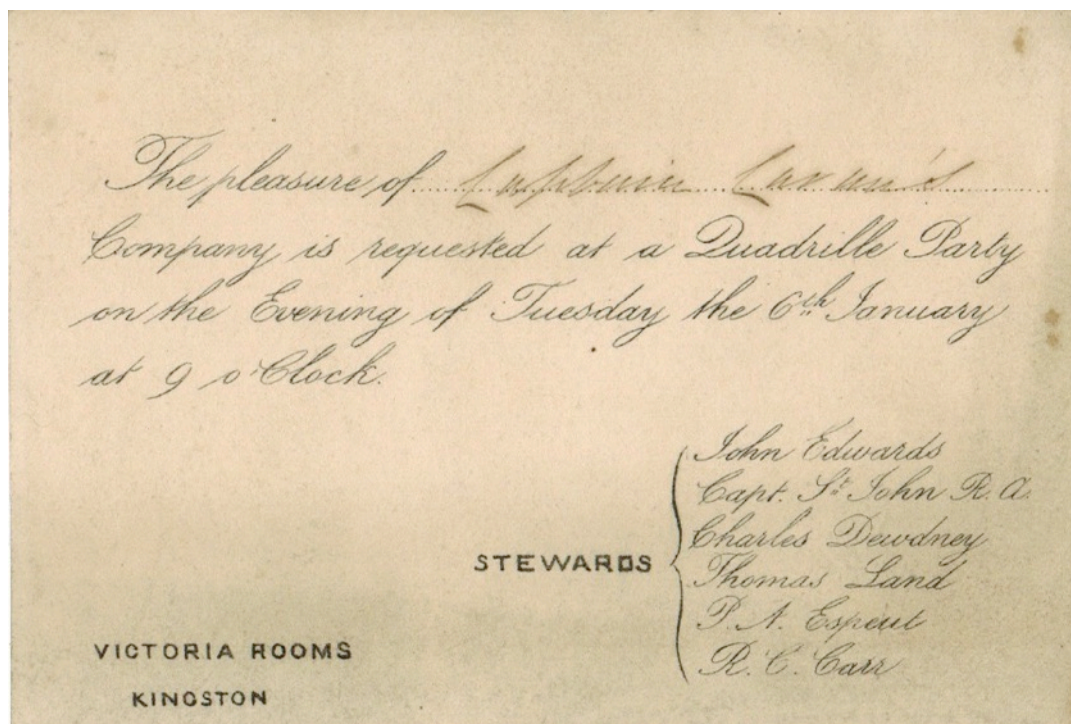 The pleasure of Captain
Company is requested at a Quadrille Party
on the Evening of Tuesday the 6th January
at 9 o'Clock.
STEWARDS
John Edwards
Capt. St. John R. A.
Charles Dewdney
Thomas Land
P. A. Espeut
R. C. Carr
VICTORIA ROOMS
KINGSTON